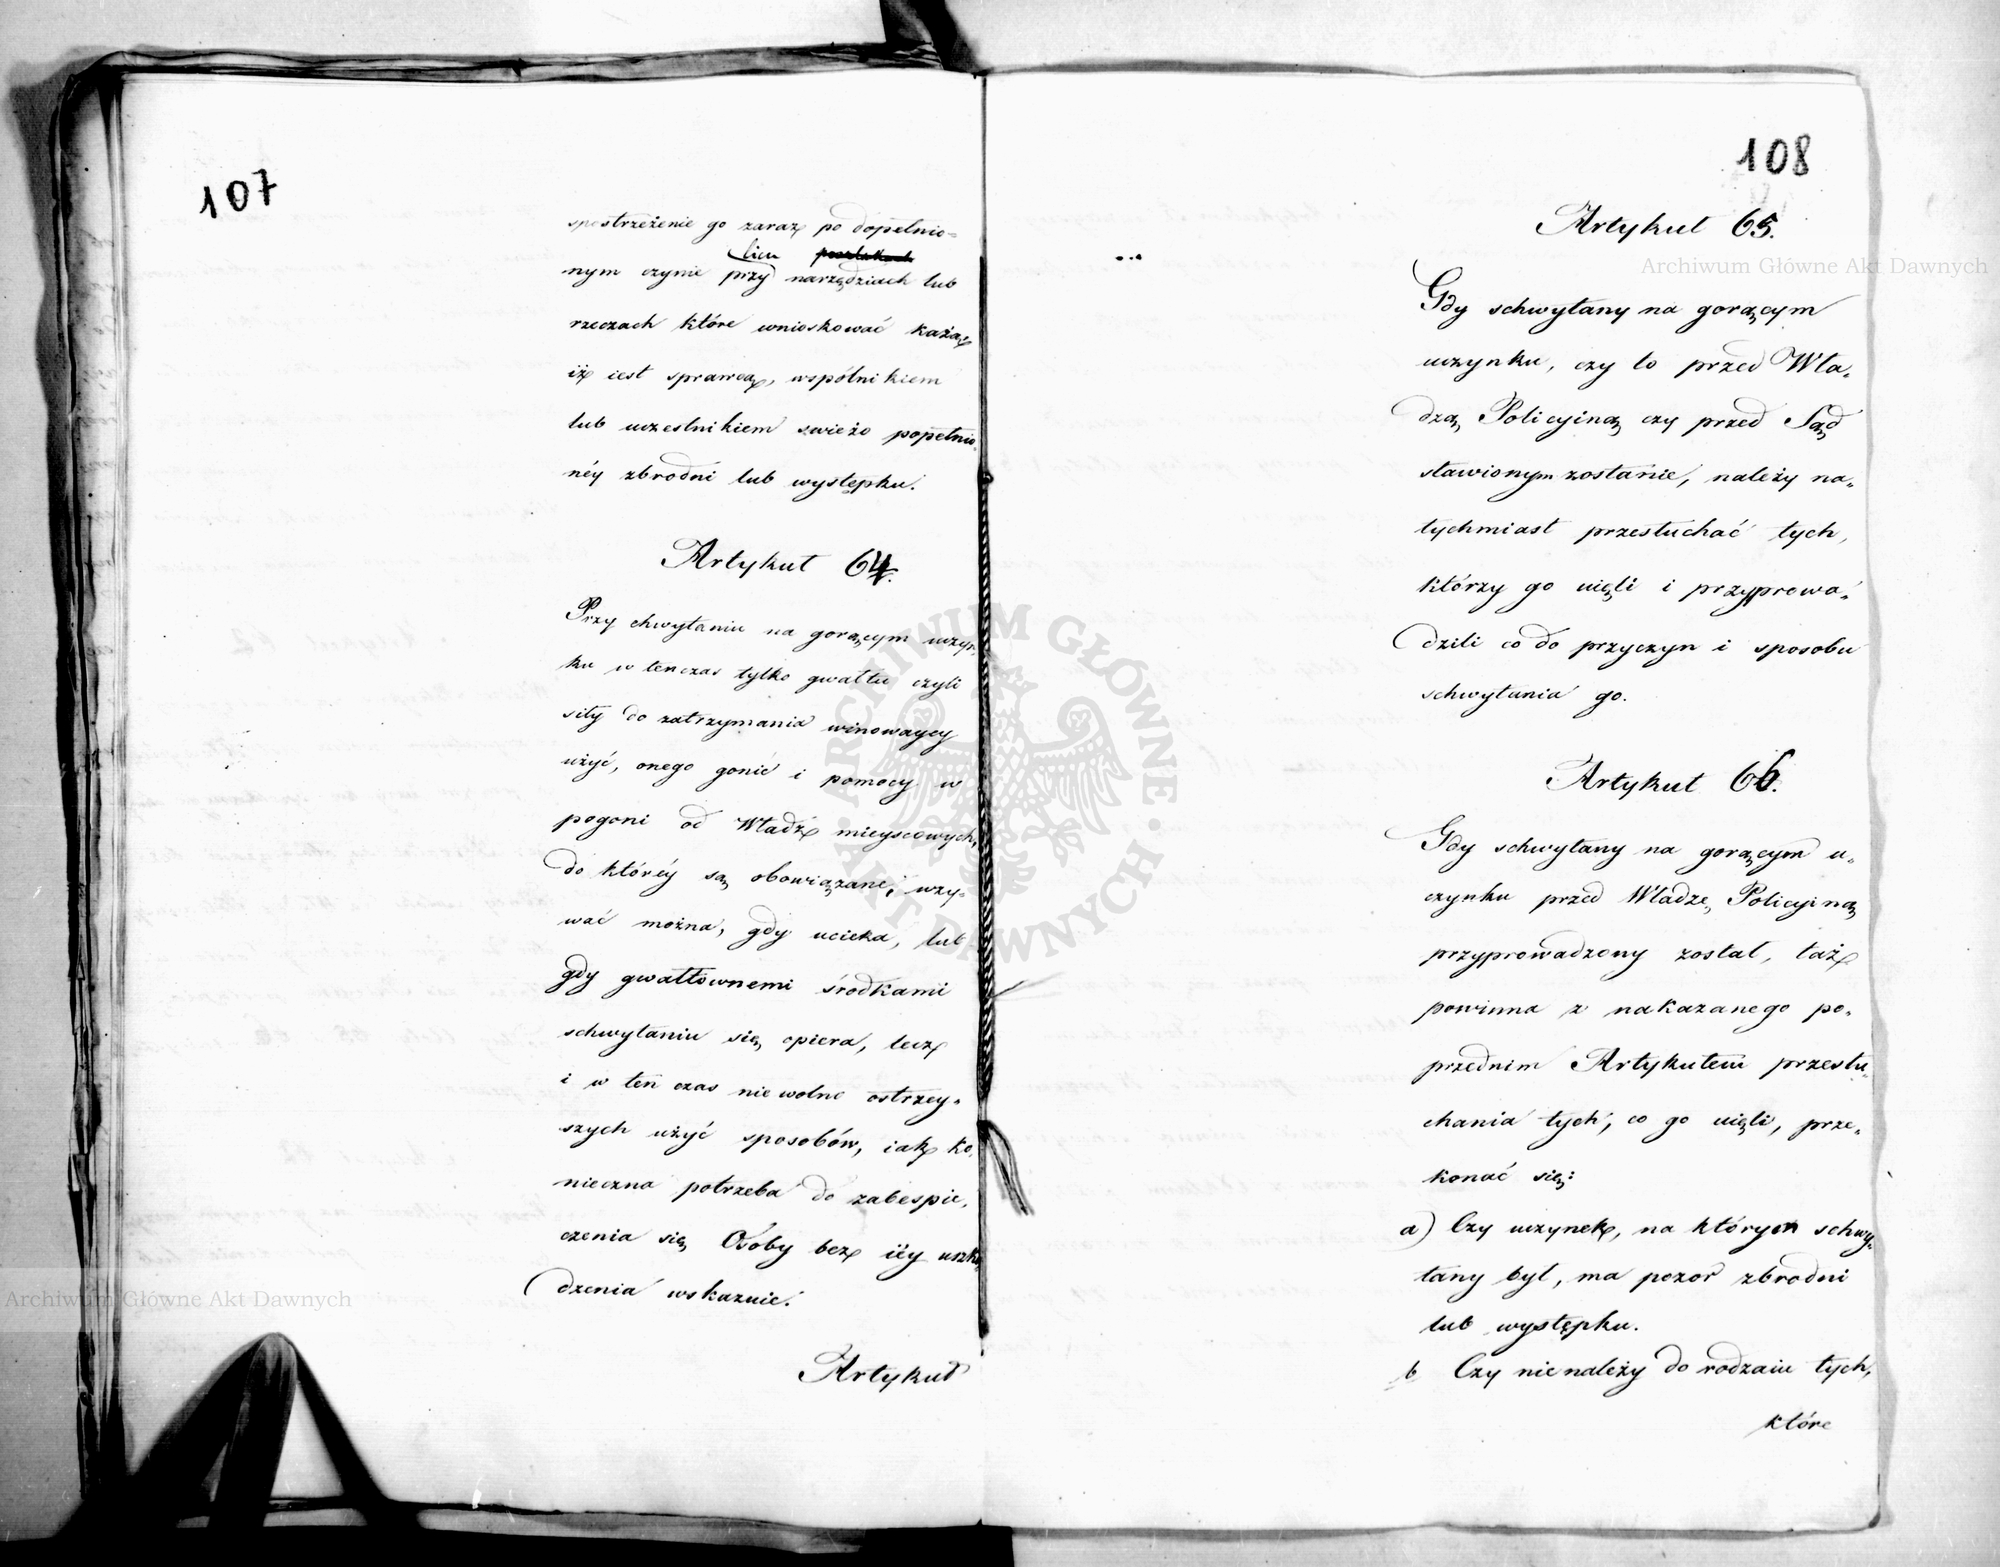 107
spostrzeżenie go zaraz po dopełnio=
licu
nym czynie przy narzędziach lub
rzeczach które wnioskować każą
iż iest sprawcą, wspólnikiem
lub uczestnikiem swieżo popełnio
néy zbrodni lub występku.
Artykuł 64.
Przy chwytaniu na gorącym uczyn
ku w tenczas tylko gwałtu czyli
siły do zatrzymania winowaycy
użyć, onego gonić i pomocy w
pogoni od Władz mieyscowych,
do któréy są obowiązane, wzy=
wać można, gdy ucieka, lub
gdy gwałtownemi środkami
schwytaniu się opiera, lecz
i w ten czas nie wolno ostrzey=
szych użyć sposobów, iak ko,
nieczna potrzeba do zabespie,
czenia się Osoby bez iéy uszko
dzenia wskazuie.
Artykuł
108
Artykuł 65.
Gdy schwytany na gorącym
uczynku, czy to przed Wła=
dzą Policyiną czy przed Sąd
stawionym zostanie, należy na=
tychmiast przesłuchać tych,
którzy go uięli i przyprowa=
dzili co do przyczyn i sposobu
schwytania go.
Artykuł 66.
Gdy schwytany na gorącym u=
czynku przed Władzę Policyiną
przyprowadzony został, taż
powinna z nakazanego po=
przednim Artykułem przesłu=
chania tych, co go uięli, prze=
konać się:
a) Czy uczynek, na którym schwy=
tany był, ma pozor zbrodni
lub występku.
b Czy nie należy do rodzaiu tych,
które
Archiwum Główne Akt Dawnych
Archiwum Główne Akt Dawnych
ARCHIWUM GŁÓWNE · AKT DAWNYCH ·